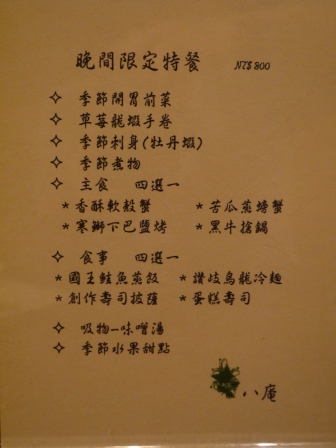 晚間限定特餐 NT$ 800
✧ 季節開胃前菜
✧ 草莓龍蝦手卷
✧ 季節刺身(牡丹蝦)
✧ 季節煮物
✧ 主食 四選一
* 香酥軟殼蟹 * 苦瓜蒸螃蟹
* 寒鰤下巴鹽烤 * 黑牛搶鍋
✧ 食事 四選一
* 國王鮭魚蒸飯 * 讚岐烏龍冷麵
* 創作壽司披薩 * 蛋糕壽司
✧ 吸物—味噌湯
✧ 季節水果甜點
八庵